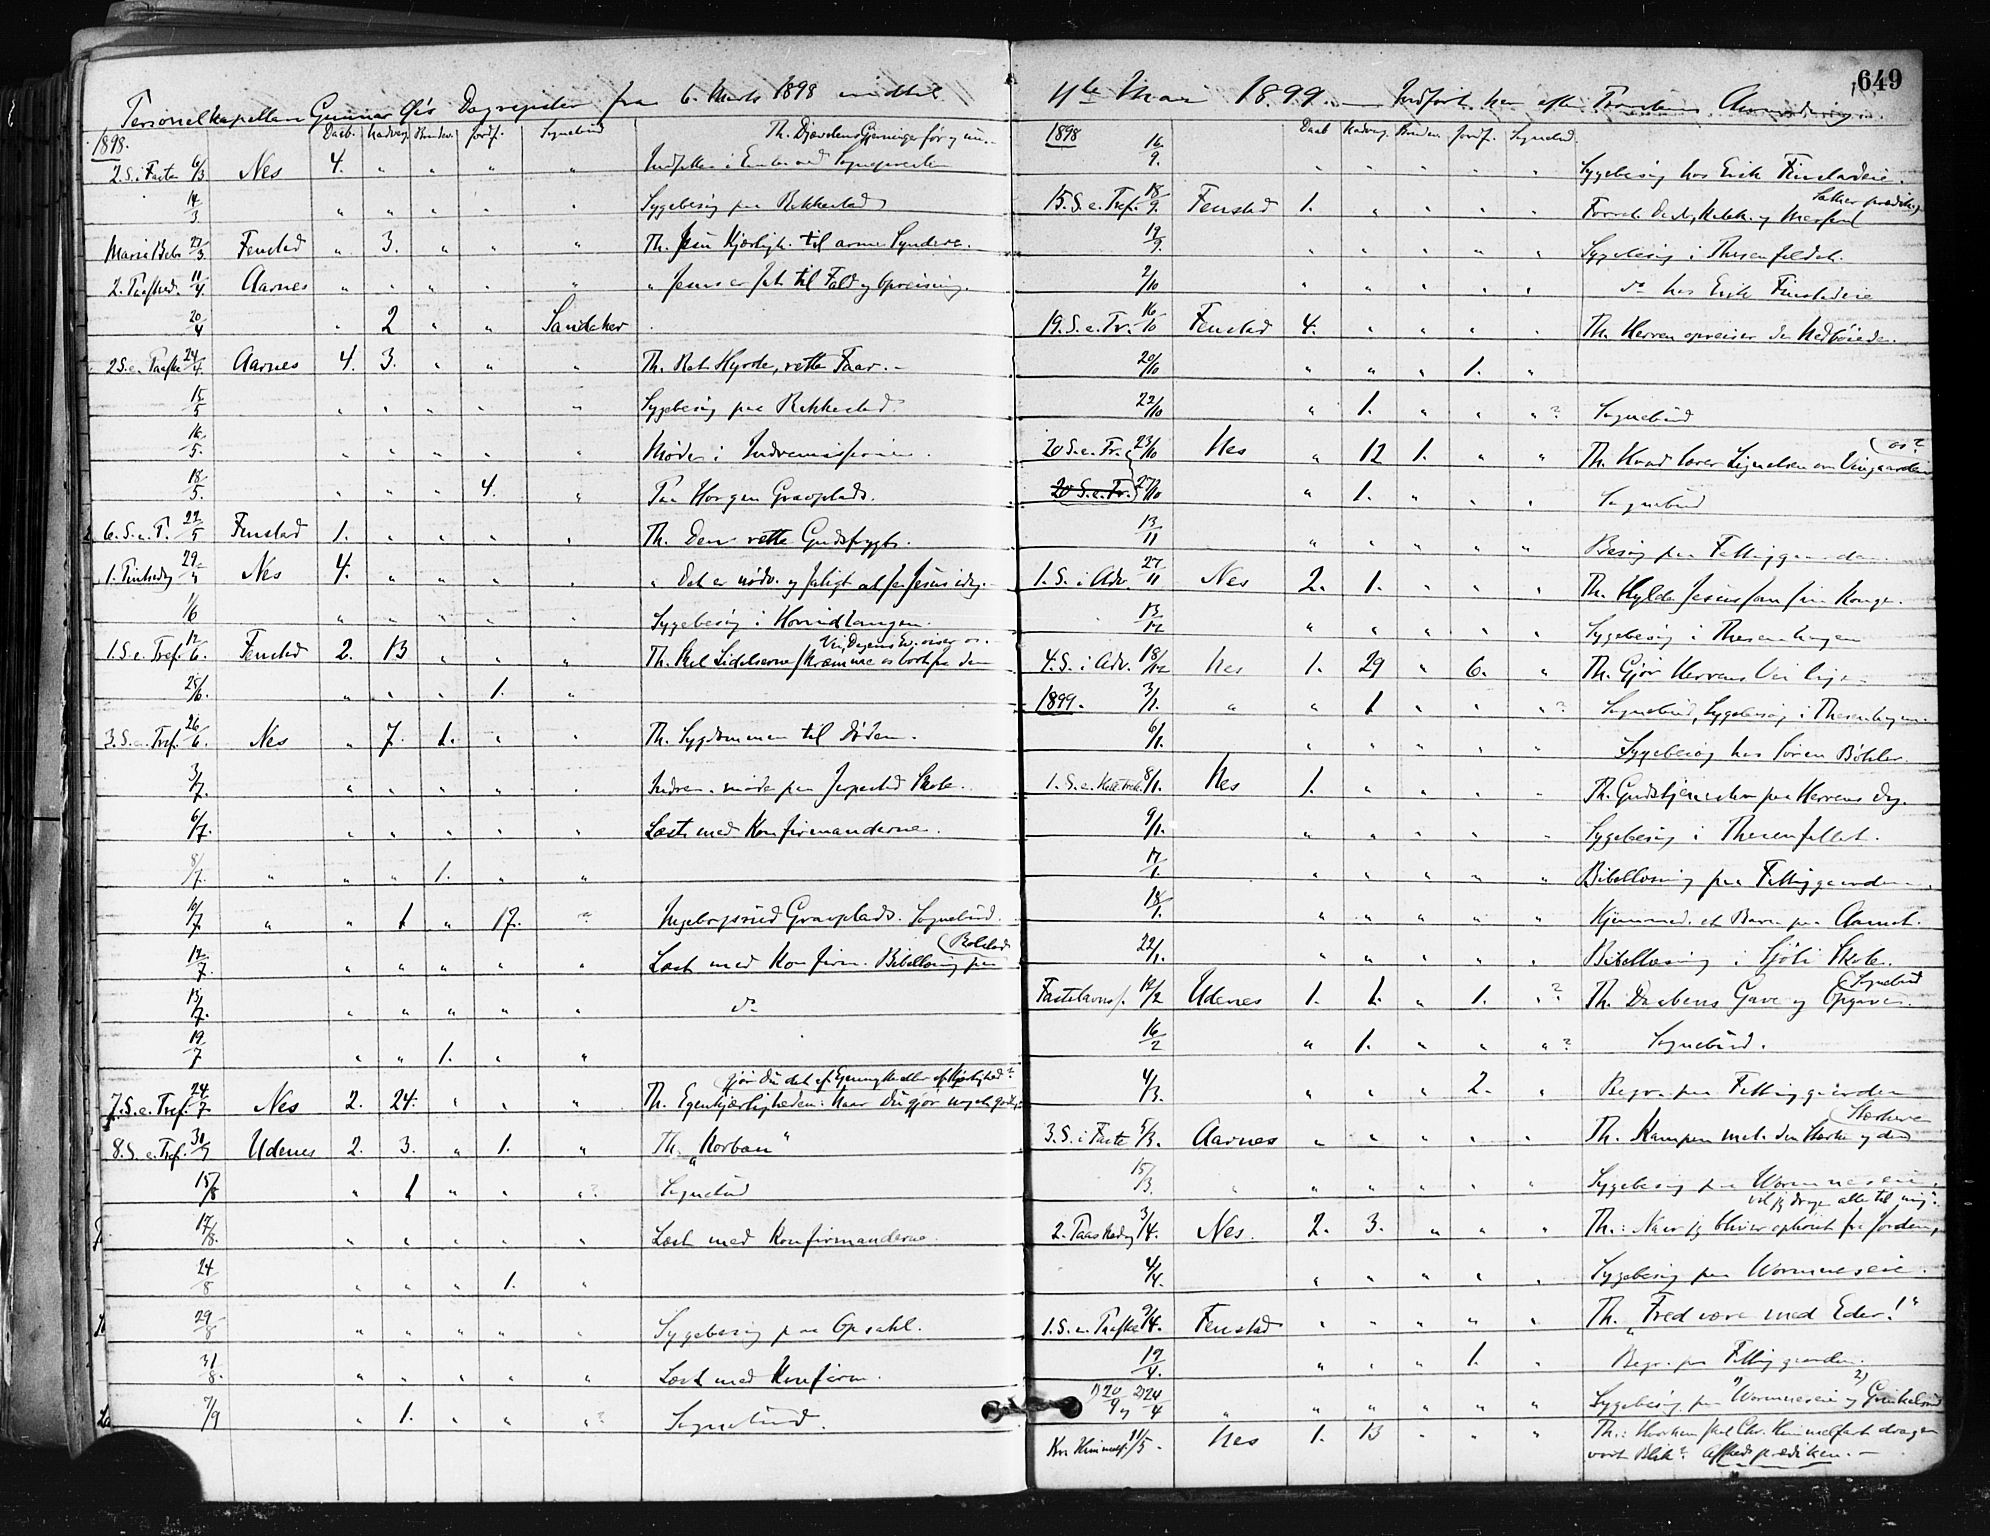 649
Personelkapellan Gunnar Dagregister fra 6. Marts 1898 indtil
11te Mai 1899.
1898. Daab. Nadverg. Jordf. Sognebud
2. S. i Faste 6/3 Nes 4. " " " "
14/3 " " " " " Sygebesøg paa Rekkestad
Mariæ Beb. 27/3 Fenstad " 3. " " " Th. Jesu Kjærligh. til arme Syndere.
2. Paasked. 11/4 Aarnes " " " " " " Jesus er sat til Fald og Opreisning.
20/4 " 2 " " Sandaker
2 S. e. Paaske 24/4 Aarnes 4. 3. " " " Th. Ret Hyrde, rette Faar.
15/5 " " " " " Sygebesøg paa Rekkestad.
16/5. " " " " " Møde i Indremissionen.
18/5. " " " 4. " Paa Horgen Gravplads.
6. S. e. P. 22/5 Fenstad 1. " " " " Th. Den rette Gudsfrygt.
1. Pintsedag 29/5 Nes 4. " " " " " Det er nødv. og saligt at se Jesus idag.
1/6 " " " " " Sygebesøg i Horvidlangen.
Vei, Dagens Ev. viser os.
1. S. e. Tref. 12/6. Fenstad 2. 13 " " " Th. Skal Lidelserne skræmme os bort fra den
25/6. " " " 1. "
3. S. e. Tref. 26/6. Nes " 7. 1. " " Th. Sygdommen til Døden.
3/7. " " " " " Indrem. møde paa Jerpestad Skole.
6/7. " " " " " Læst med Konfirmanderne.
8/7. " " " 1. " "
6/7 " " 1 " 17. "? Ingeborgsrud Gravplads. Sognebud.
12/7. " " " " " Læst med Konfirm. Bibellæsning paa
13/7. " " " " " do
19/7 " " 1. " "
gjør du det af Egennytte eller af Kjærlighed?
7. S. e. Tref. 24/7. Nes 2. 24. " " " Th. Egenkjærligheden: Naar du gjør noget godt,
8. S. e. Tref. 31/7 Udenes 2. 3. " 1. " Th. „Korban"
15/8 " 1 " " "? Sognebud
17/8. " " " " " Læst med Konfirmanderne.
24/8 " " " 1. "
29/8 " " " " " Sygebesøg paa Opsahl.
31/8. " " " " " Læst med Konfirm.
7/9 " 1. " " "? Sognebud.
1898 Daab Nadverg. Jordf. Sognebud.
16/9. " " " " " Sygebesøg hos Erik Finstadeie.
15. S. e. Tref. 18/9. Fenstad 1. " " " "
19/9. " " " " " Sygebesøg i Thesenfeldet.
2/10 " " " " " do hos Erik Finstadeie
19. S. e. Tr. 16/10 Fenstad 4. " " " " Th. Herren opreiser de Nedbøiede.
20/10 " " " 1. "
22/10 " 1. " " "? Sognebud
os?
20 S. e. Tr. 23/10 Nes " 12 1. " " Th. Hvad lærer Lignelsen om Vingaarden
20 S. e. Tr. 27/10 " 1. " " Sognebud
13/11 " " " " " Besøg paa Fattiggaarden.
1. S. i Adv. 27/11 Nes 2. 1. " " " Th. Hylde Jesus som sin Konge.
13/12 " " " " " Sygebesøg i Thesenhagen
4. S. i Adv. 18/12 Nes 1. 29 " 6. " Th. Gjør Herrens Vei
1899. 3/1. " " 1 " " "? Sognebud, Sygebesøg i Thesenhagen.
6/1. " " " " " Sygebesøg hos Søren Bøhler.
1. S. e. Hell. trek. 8/1. Nes 1. " " " " Th. Gudstjenesten paa Herrens Dag.
9/1. " " " " " Sygebesøg i Thesenfellet.
17/1. " " " " " Bibellæsning paa Fattiggaarden.
18/1. " " " " " Hjemmed. et Barn paa Aarnes.
22/1. " " " " " Bibellæsning i Sjøli Skole.
Sognebud
Fastelavns s. 12/2 Udenes 1. 1. " 1. "? Th. Daabens Gave og Opgave.
16/2 " 1. " " "? Sognebud.
4/3. " " " 2. " Begr. paa Fattiggaarden
Stærkere
3. S. i Faste 5/3. Aarnes " " " " " Th. Kampen mel. den Stærke og den
15/3. " " " " " " Sygebesøg paa Wormneseie.
vil jeg drage alle til mig".
2. Paaskedag 3/4. Nes. 2. 3. " " " Th.: Naar jeg bliver ophøiet fra Jorden,
4/4. " " " " " Sygebesøg paa Wormneseie.
1. S. e. Paaske 9/4. Fenstad " " " " " Th. „Fred være med Eder!"
19/4. " " " 1. " Begr. paa Fattiggaarden.
1) 20/4 og 2) 24/4 " " " " " " Sygebesøg paa 1) Wormneseie og 2)
Kr. Himmelf. 11/5. Nes 1. 13 " " " Th.: Hvorhen skal Chr. Himmelfart drage
vort Blik? Afskedsprædiken.